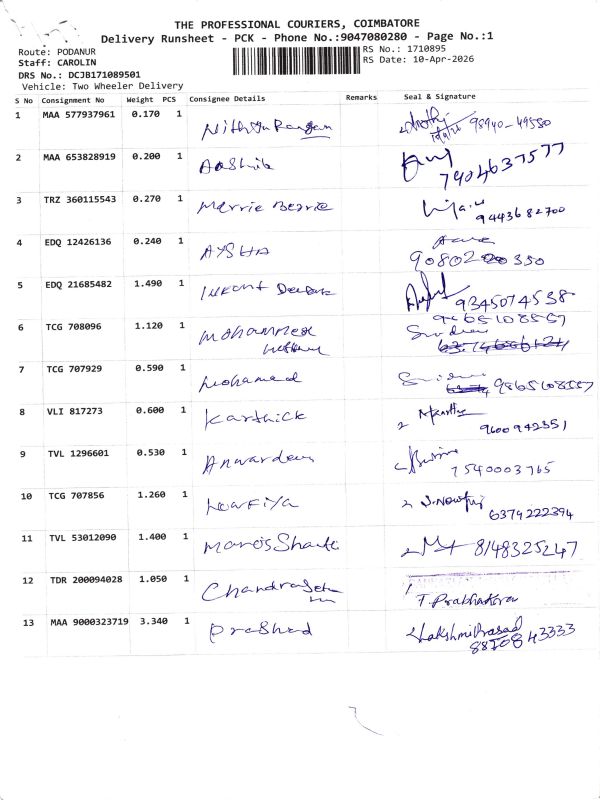 THE PROFESSIONAL COURIERS, COIMBATORE
Delivery Runsheet - PCK - Phone No.:9047080280 - Page No.:1
Route: PODANUR
RS No.: 1710895
Staff: CAROLIN
RS Date: 10-Apr-2026
DRS No.: DCJB171089501
Vehicle: Two Wheeler Delivery
S No Consignment No Weight PCS Consignee Details Remarks Seal & Signature
1 MAA 577937961 0.170 1 Nithya Rangan 98940-49580
2 MAA 653828919 0.200 1 Aashik 7904637577
3 TRZ 360115543 0.270 1 Merrie Bezzie 9443682700
4 EDQ 12426136 0.240 1 AYSHA 9080200350
5 EDQ 21685482 1.490 1 9345074538
6 TCG 708096 1.120 1 Mohammed 9865108557
7 TCG 707929 0.590 1 Mohamed 9865108557
8 VLI 817273 0.600 1 Karthick 9600942351
9 TVL 1296601 0.530 1 Anwardeen 7540003765
10 TCG 707856 1.260 1 Nowfiya J. Nowfiya 6374222394
11 TVL 53012090 1.400 1 8148325247
12 TDR 200094028 1.050 1 T. Prabhakaran
13 MAA 9000323719 3.340 1 Prashad Lakshmi Prasad
8870843333